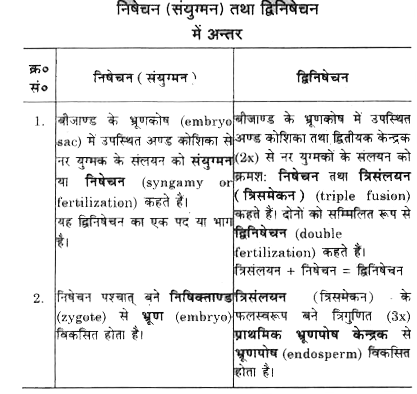 निषेचन (संयुग्मन) तथा द्विनिषेचन
में अन्तर
क्र०
सं०
निषेचन (संयुग्मन)
द्विनिषेचन
1.
बीजाण्ड के भ्रूणकोष (embryo
sac) में उपस्थित अण्ड कोशिका से
नर युग्मक के संलयन को संयुग्मन
या निषेचन (syngamy or
fertilization) कहते हैं।
यह द्विनिषेचन का एक पद या भाग
है।
बीजाण्ड के भ्रूणकोष में उपस्थित
अण्ड कोशिका तथा द्वितीयक केन्द्रक
(2x) से नर युग्मकों के संलयन को
क्रमश: निषेचन तथा त्रिसंलयन
(त्रिसमेकन) (triple fusion)
कहते हैं। दोनों को सम्मिलित रूप से
द्विनिषेचन (double
fertilization) कहते हैं।
त्रिसंलयन + निषेचन = द्विनिषेचन
2.
निषेचन पश्चात् बने निषिक्ताण्ड
(zygote) से भ्रूण (embryo)
विकसित होता है।
त्रिसंलयन (त्रिसमेकन) के
फलस्वरूप बने त्रिगुणित (3x)
प्राथमिक भ्रूणपोष केन्द्रक से
भ्रूणपोष (endosperm) विकसित
होता है।